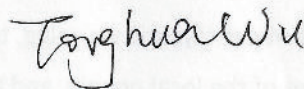 Tonghua Wu